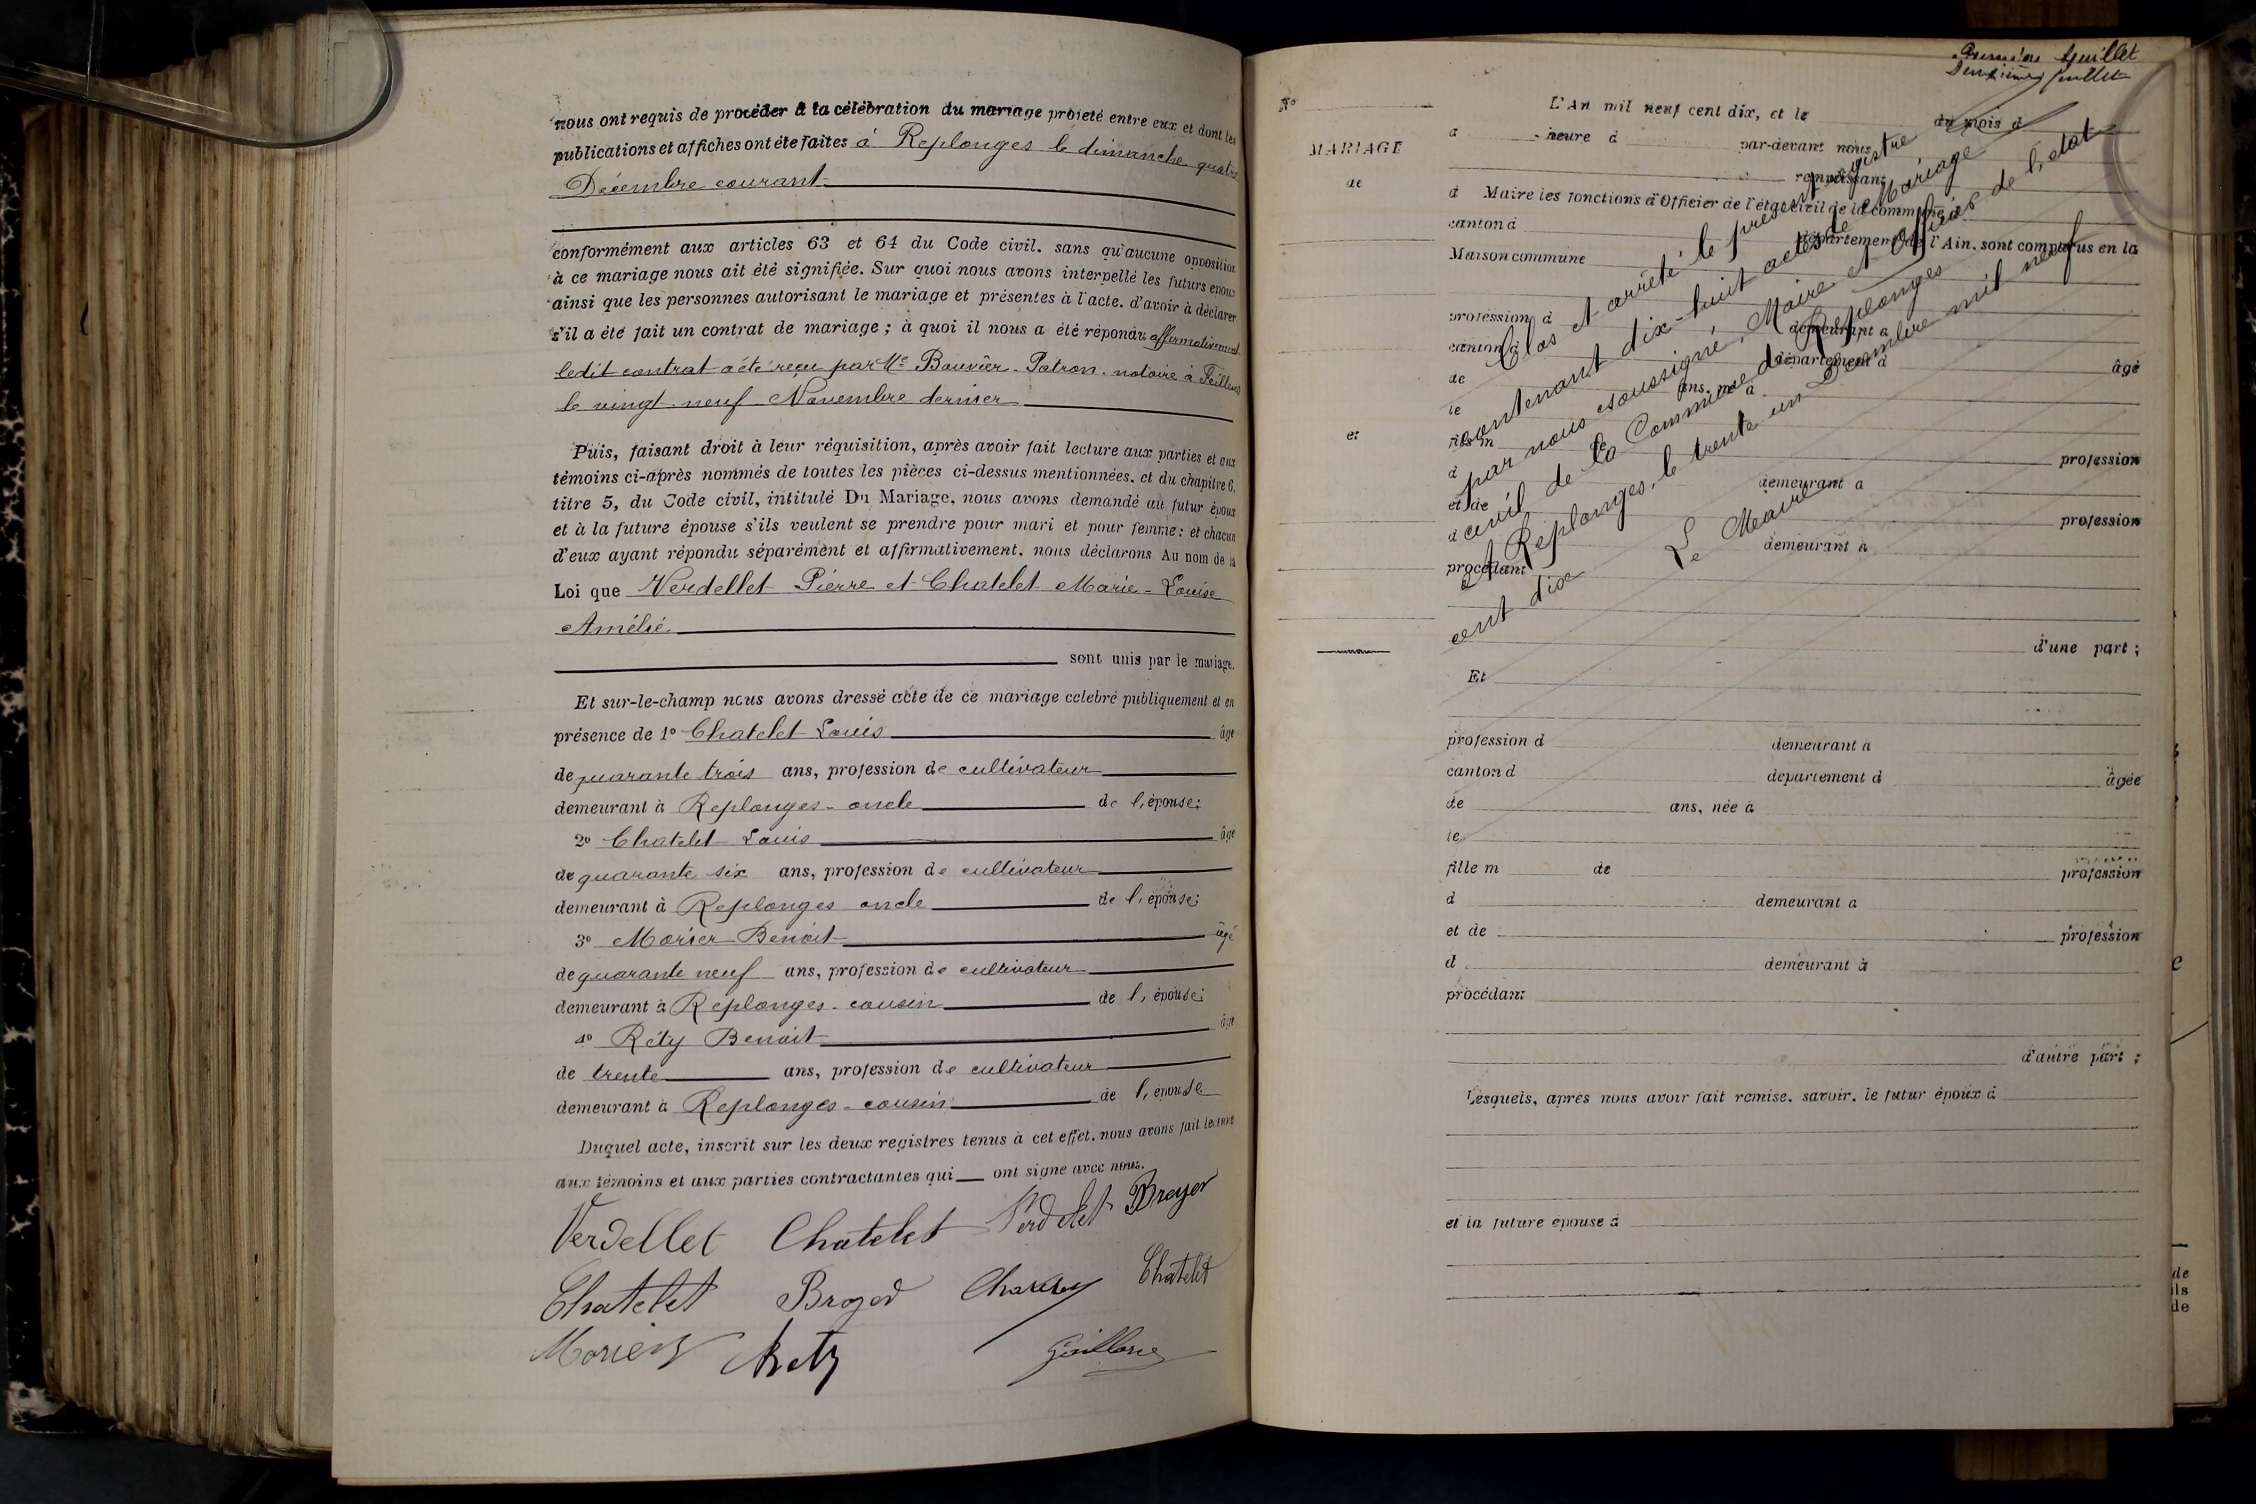 nous ont requis de procéder à la célébration du mariage projeté entre eux et dont les
publications et affiches ont été faites à Replonges le dimanche quatre
Décembre courant
conformément aux articles 63 et 64 du Code civil. sans qu'aucune opposition
à ce mariage nous ait été signifiée. Sur quoi nous avons interpellé les futurs époux
ainsi que les personnes autorisant le mariage et présentes à l'acte. d'avoir à déclarer
s'il a été fait un contrat de mariage ; à quoi il nous a été répondu affirmativement
ledit contrat a été reçu par Me Bouvier-Patron. notaire à Feillens
le vingt-neuf Novembre dernier
Puis, faisant droit à leur réquisition, après avoir fait lecture aux parties et aux
témoins ci-après nommés de toutes les pièces ci-dessus mentionnées. et du chapitre 6,
titre 5, du Code civil, intitulé Du Mariage, nous avons demandé au futur époux
et à la future épouse s'ils veulent se prendre pour mari et pour femme : et chacun
d'eux ayant répondu séparément et affirmativement. nous déclarons Au nom de la
Loi que Verdellet Pierre et Chatelet Marie-Louise
Amélie
sont unis par le mariage.
Et sur-le-champ nous avons dressé acte de ce mariage célébré publiquement et en
présence de 1° Chatelet Louis âgé
de quarante trois ans, profession de cultivateur
demeurant à Replonges - oncle de l'épouse ;
2° Chatelet Louis âgé
de quarante six ans, profession de cultivateur
demeurant à Replonges oncle de l'épouse ;
3° Morier Benoit âgé
de quarante neuf ans, profession de cultivateur
demeurant à Replonges - cousin de l'épouse ;
4° Réty Benoit âgé
de trente ans, profession de cultivateur
demeurant à Replonges - cousin de l'épouse
Duquel acte, inscrit sur les deux registres tenus à cet effet. nous avons fait lecture
aux témoins et aux parties contractantes qui ont signé avec nous.
Verdellet Chatelet Verdelet Broyer
Chatelet Broyer Chatelet
Morier Rety
Premier feuillet
Deuxième feuillet
N°
MARIAGE
de
et
L'An mil neuf cent dix, et le du mois d
à heure d par-devant nous
remplissant
d Maire les fonctions d'Officier de l'état civil de la commune
canton d département de l'Ain. sont comparus en la
Maison commune
profession d demeurant à
canton d département d âgé
de ans, né à
le
fils m de profession
d demeurant à
et de profession
d demeurant à
procédant
Clos et arrêté le présent registre
contenant dix-huit actes de Mariage
par nous soussigné, Maire et officier de l'état
civil de la Commune de Replonges
A Replonges, le trente un Décembre mil neuf
cent dix
Le Maire
d'une part ;
Et
profession d demeurant à
canton d département d âgée
de ans, née à
le
fille m de profession
d demeurant à
et de profession
d demeurant à
procédant
d'autre part ;
Lesquels, après nous avoir fait remise. savoir. le futur époux d
et la future épouse d
de
ils
de